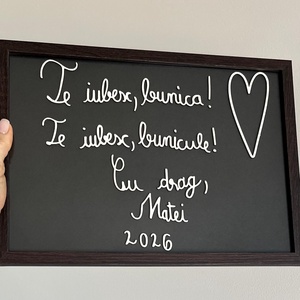 Te iubesc, bunica!
Te iubesc, bunicule!
Cu drag,
Matei
2026